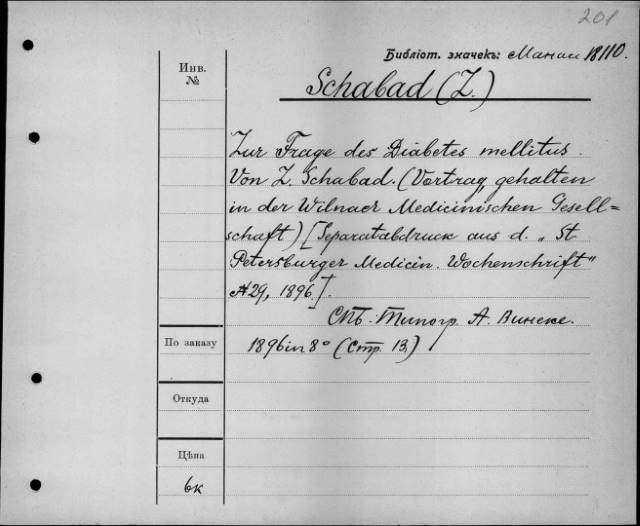 201
Библіот. значекъ: Манаи 18110.
Инв.
№
Schabad (Z.)
Zur Frage des Diabetes mellitus.
Von Z. Schabad. (Vortrag, gehalten
in der Wilnaer Medicinischen Gesell=
schaft) [Separatabdruck aus d. „St
Petersburger Medicin. Wochenschrift“
№ 29, 1896].
СПБ. Типогр. А. Винеке.
По заказу
1896 in 8° (Стр. 13)
Откуда
Цѣна
6к